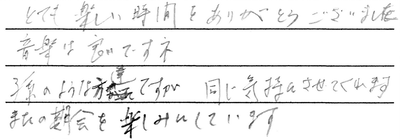 とても楽しい時間をありがとうございました
音楽は良いですネ
孫のような方達ですが 同じ気持にさせてくれます
またの機会を楽しみにしています